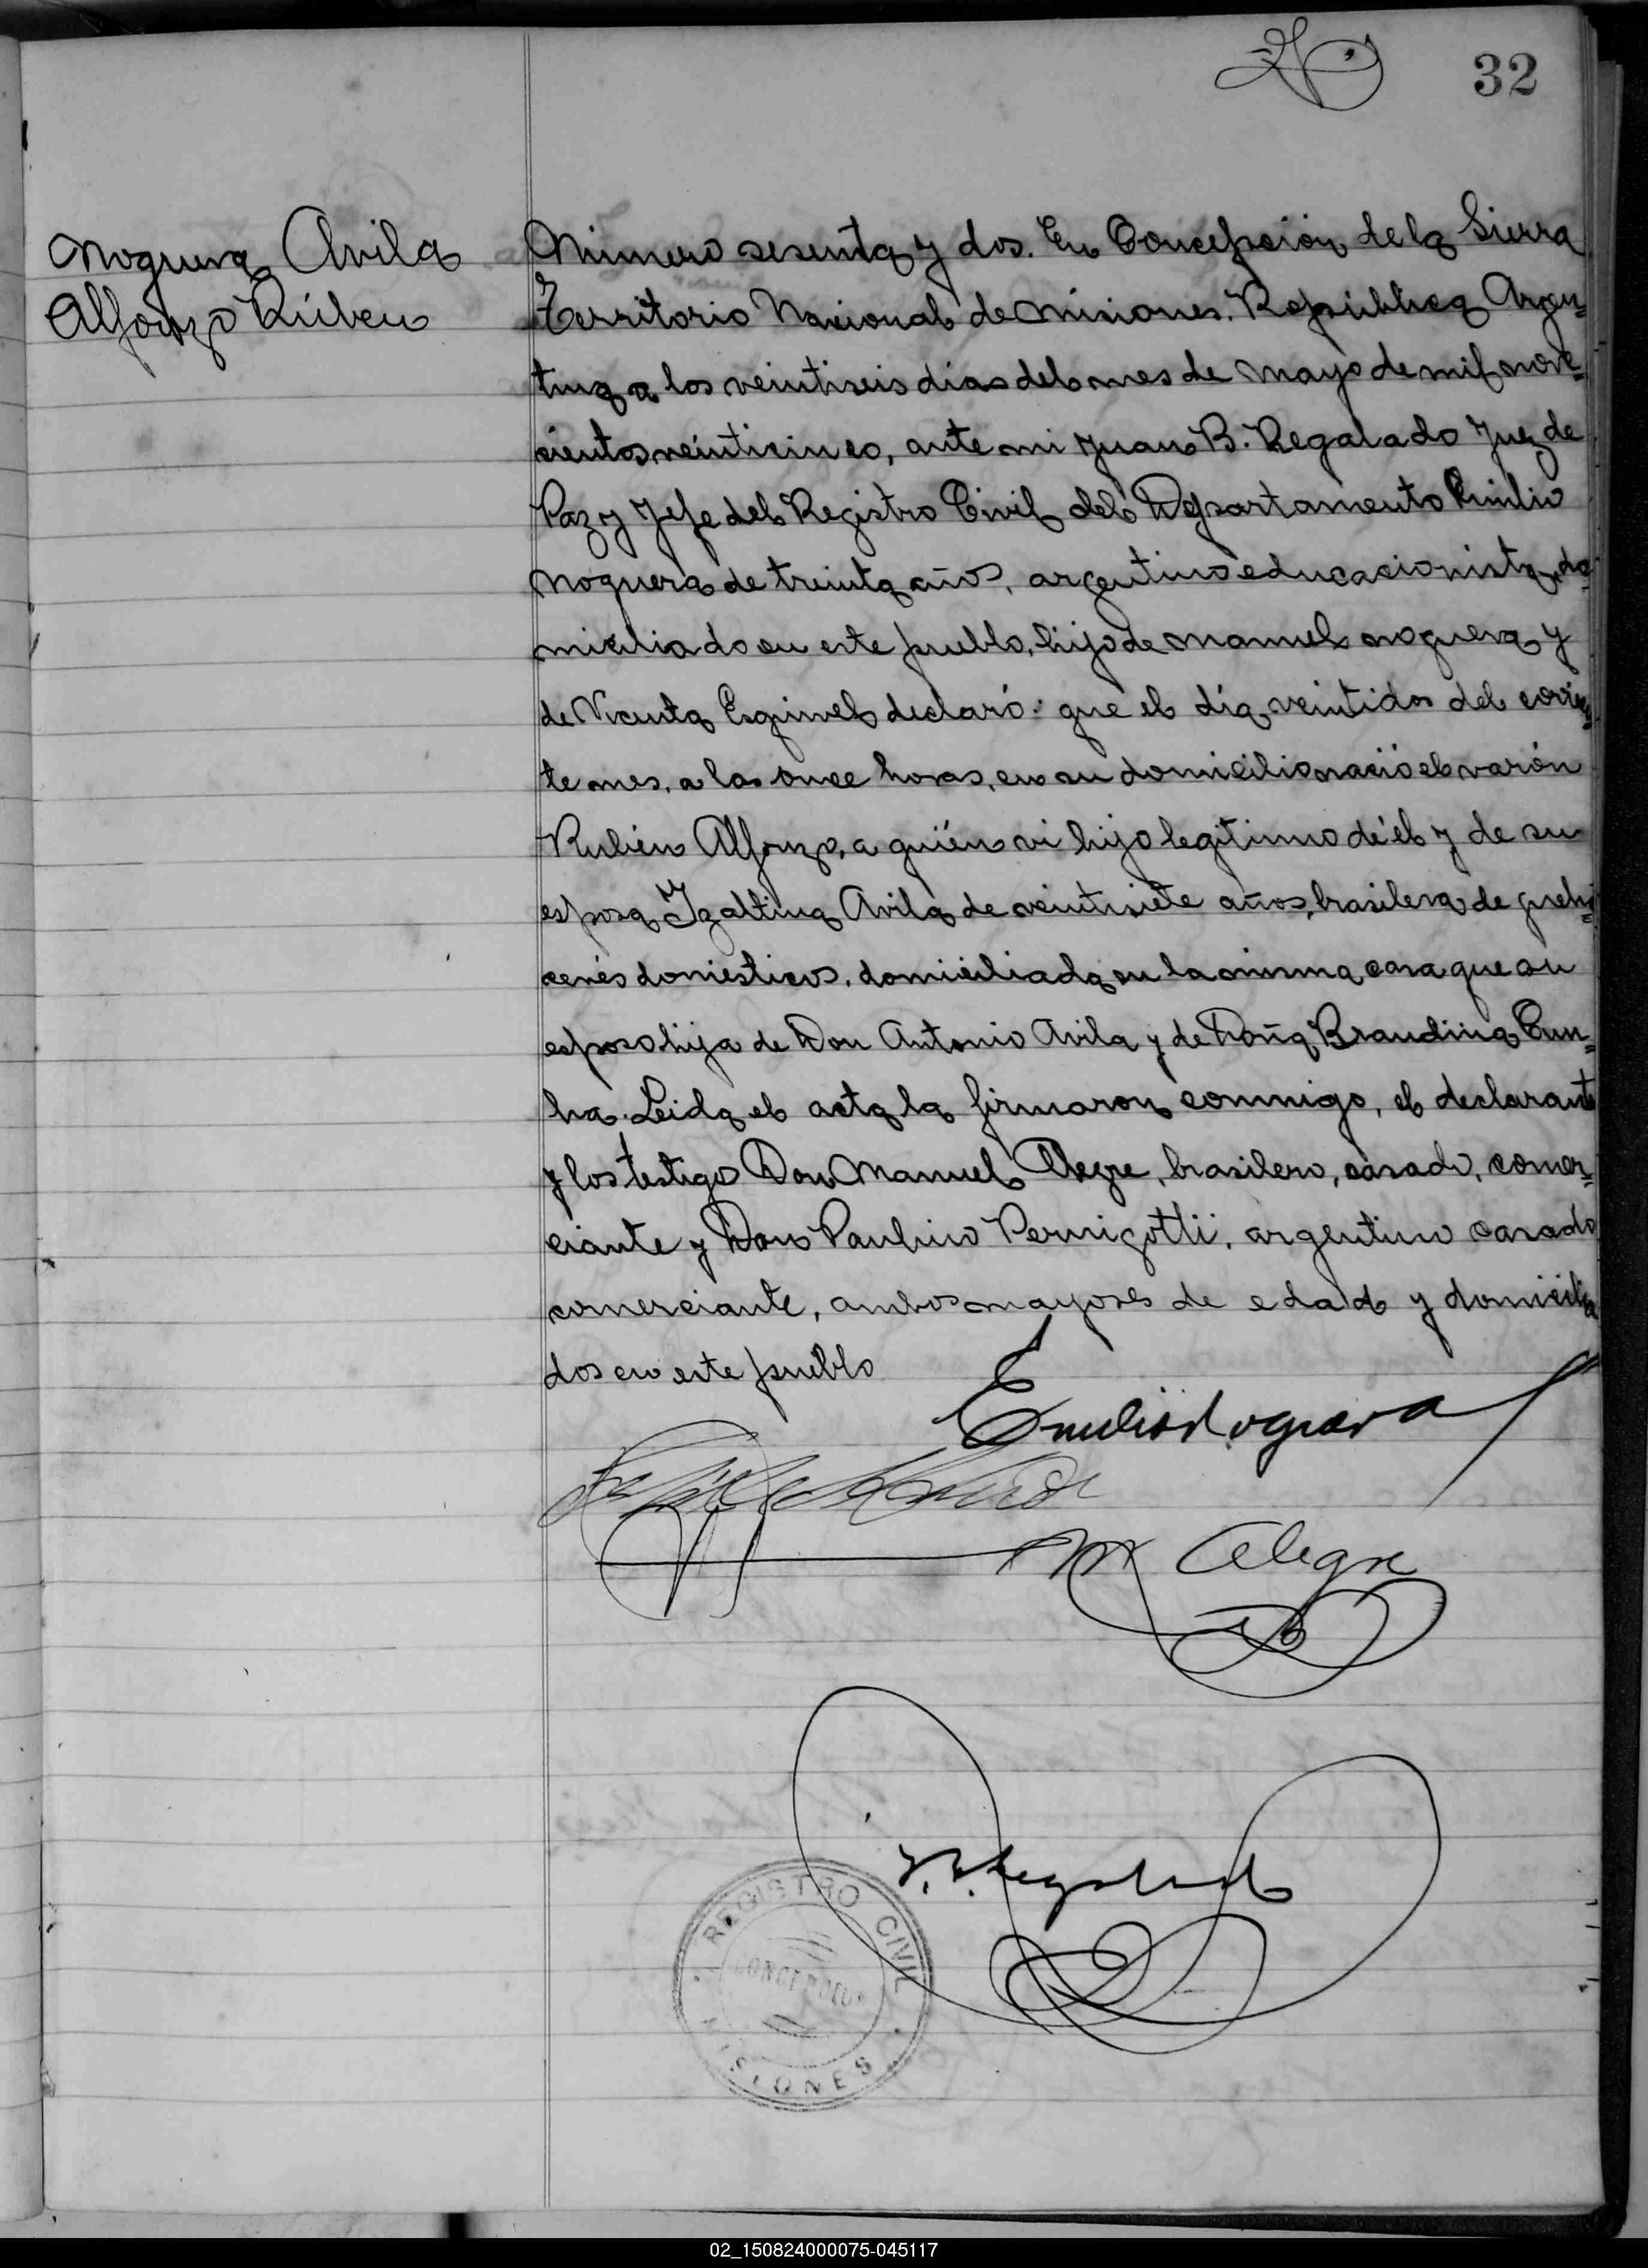 32
Noguera Avila
Alfonzo Rúben
Número sesenta y dos. En Concepción de la Sierra
Territorio Nacional de Misiones. República Argen=
tina a los veintiseis dias del mes de mayo de mil nove=
cientos veinticinco, ante mi Juan B. Regalado Juez de
Paz y Jefe del Registro Civil del Departamento Emilio
Noguera de treinta años, argentino educacionista, do=
miciliado en este pueblo, hijo de Manuel Noguera y
de Vicenta Esquivel declaró: que el día veintidos del corrien=
te mes, a las once horas, en su domicilio nació el varón
Rubén Alfonzo, a quién vi hijo legitimo de él y de su
esposa Izaltina Avila de veintisiete años, brasilera de queha=
cerés domésticos, domiciliada en la misma casa que su
esposo hija de Don Antonio Avila y de Doña Brandina Cun=
ha. Leida el acta la firmaron conmigo, el declarante
y los testigos Don Manuel Alegre, brasilero, casado, comer=
ciante y Don Paulino Pernigotti, argentino casado
comerciante, ambos mayores de edad y domicilia
dos en este pueblo
Emilio Noguera
M Alegre
J. B. Regalado
REGISTRO CIVIL
CONCEPCION
MISIONES
02_150824000075-045117